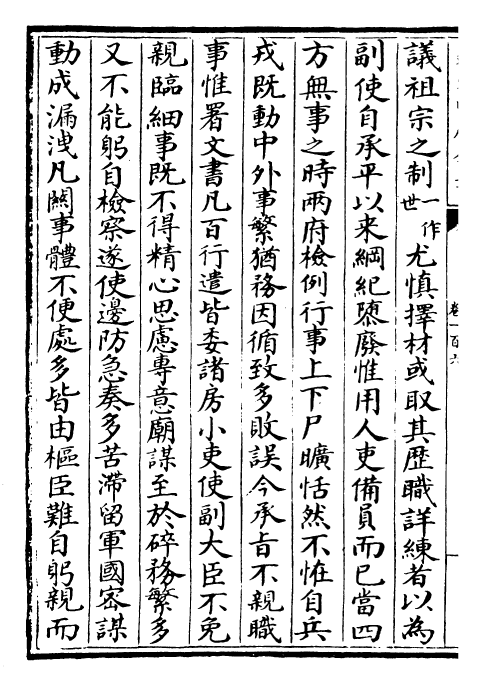 議祖宗之制一作世尤慎擇材或取其歴職詳練者以為
副使自承平以来綱紀隳廢惟用人吏備員而已當四
方無事之時兩府檢例行事上下尸曠恬然不恠自兵
戎既動中外事繁猶務因循致多敗誤今承㫖不親職
事惟署文書凡百行遣皆委諸房小吏使副大臣不免
親臨細事既不得精心思慮專意廟謀至於碎務繁多
又不能躬自檢察遂使邊防急奏多苦滯留軍國密謀
動成漏洩凡闗事體不便處多皆由樞臣難自躬親而
卷一百六